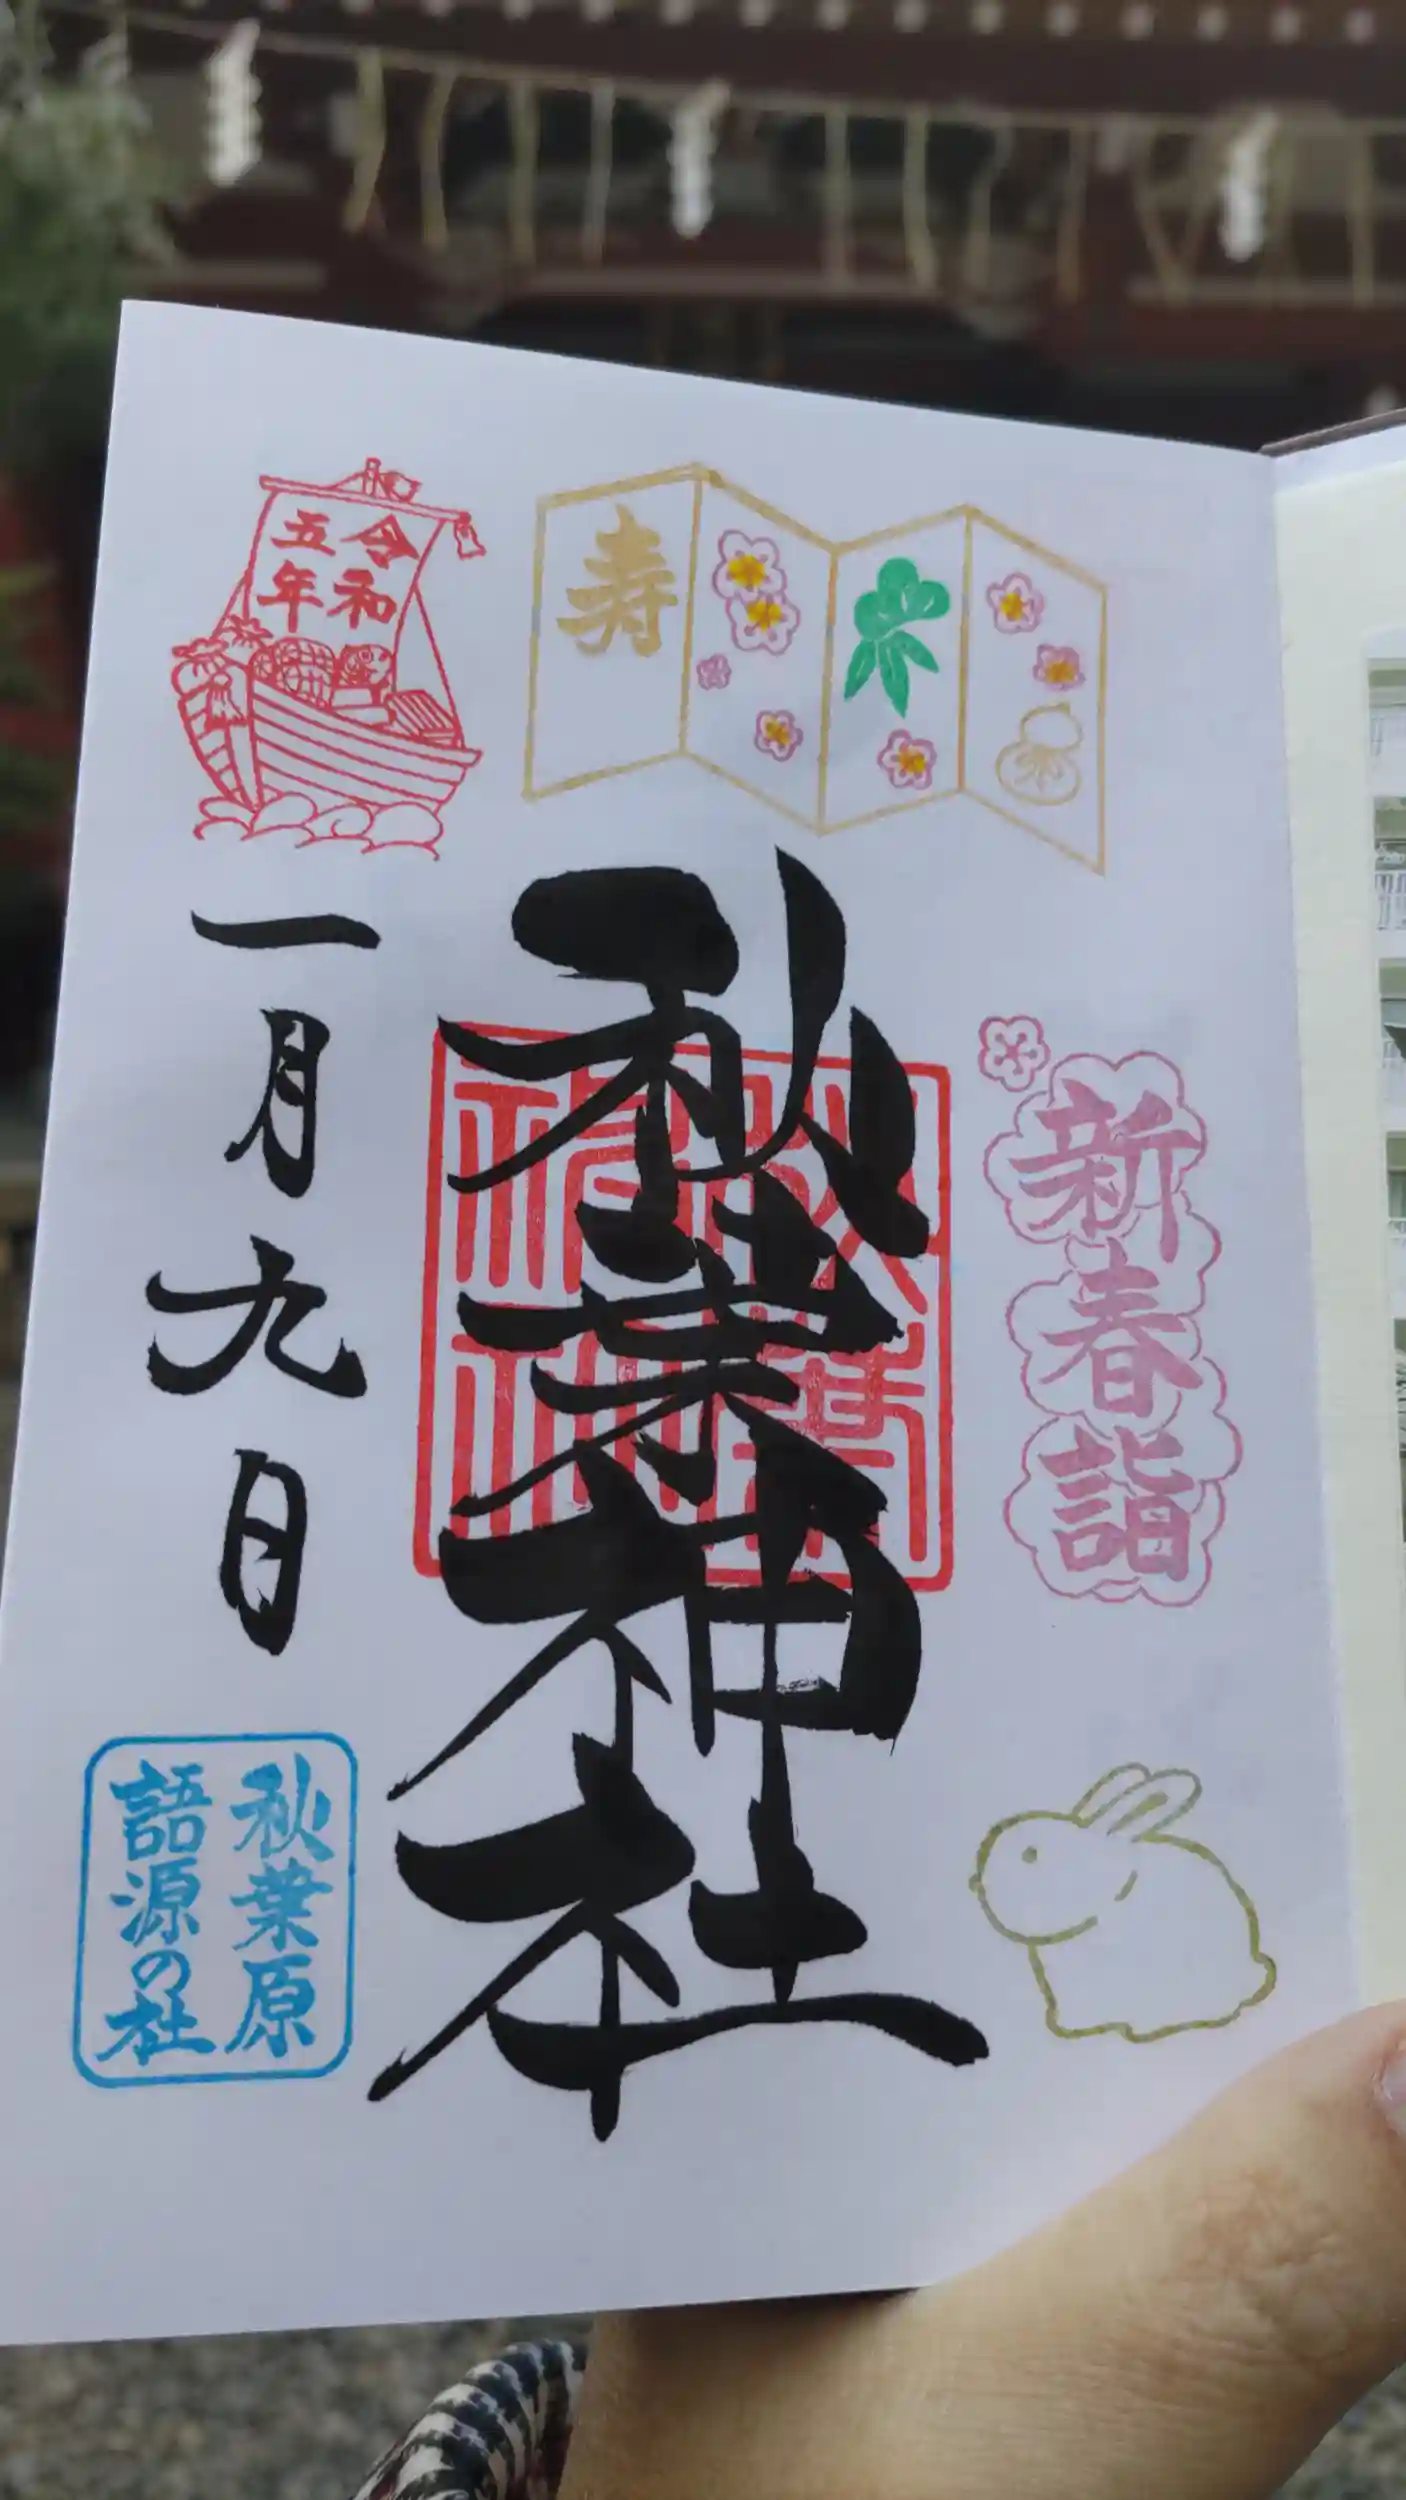 寿
新春詣
秋葉神社
令和
五年
一月九日
秋葉原
語源の社